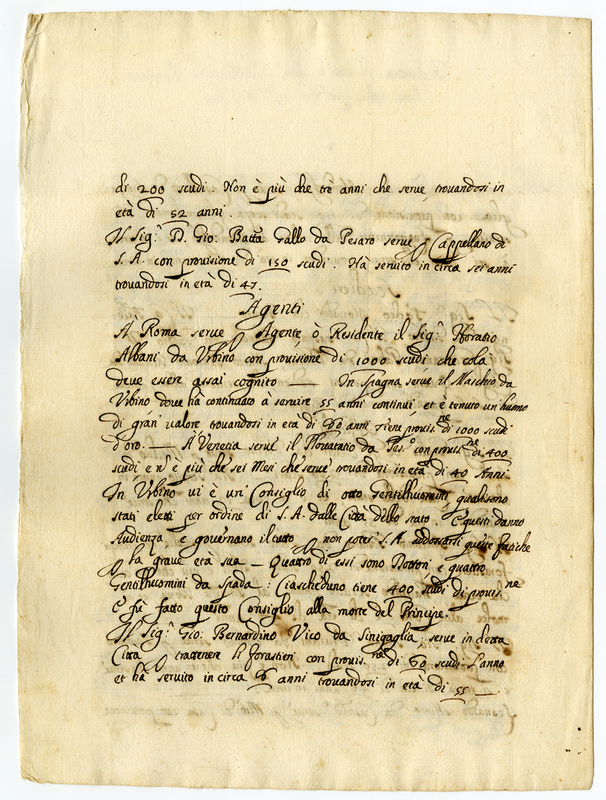 di 200 scudi. Non è più che trè anni che serve, trovandosi in
età di 52 anni.
Il Sig.r D. Gio: Batta Gallo da Pesaro serve p Cappellano di
S. A. con provisione di 150 scudi. Hà servito in circa sei anni
trovandosi in età di 47.
Agenti
A' Roma serve p Agente, ò Residente il Sig.r Horatio
Albani da Urbino con provisione di 1000 scudi che colà
deve esser assai cognito — In Spagna serve il Maschio da
Urbino dove hà continuato à servire 55 anni continui, et è tenuto un huomo
di gran valore trovandosi in età di 60 anni tiene provis.ne di 1000 scudi
d'oro. — A Venetia serve il da Pes.o con provis.ne di 400
scudi e n' è più che sei Mesi che serve trovandosi in età di 40 Anni.
In Urbino vi è un Consiglio di otto Gentilhuomini quali sono
stati eletti per ordine di S. A. dalle Città dello stato. E questi danno
Audienza, e governano il tutto p non poter S. A. addossarsi queste fatiche
p la grave età sua — Quattro di essi sono Dottori e quattro
Gentilhuomini da Spada: Ciascheduno tiene 400 scudi di provis.ne
E' fù fatto questo Consiglio alla morte del Principe.
Il Sig.r Gio: Bernardino Vico da Sinigaglia serve in detta
Città p trattenere li forastieri con provis.ne di 60 scudi l'anno
et hà servito in circa 6 anni trovandosi in età di 55 —